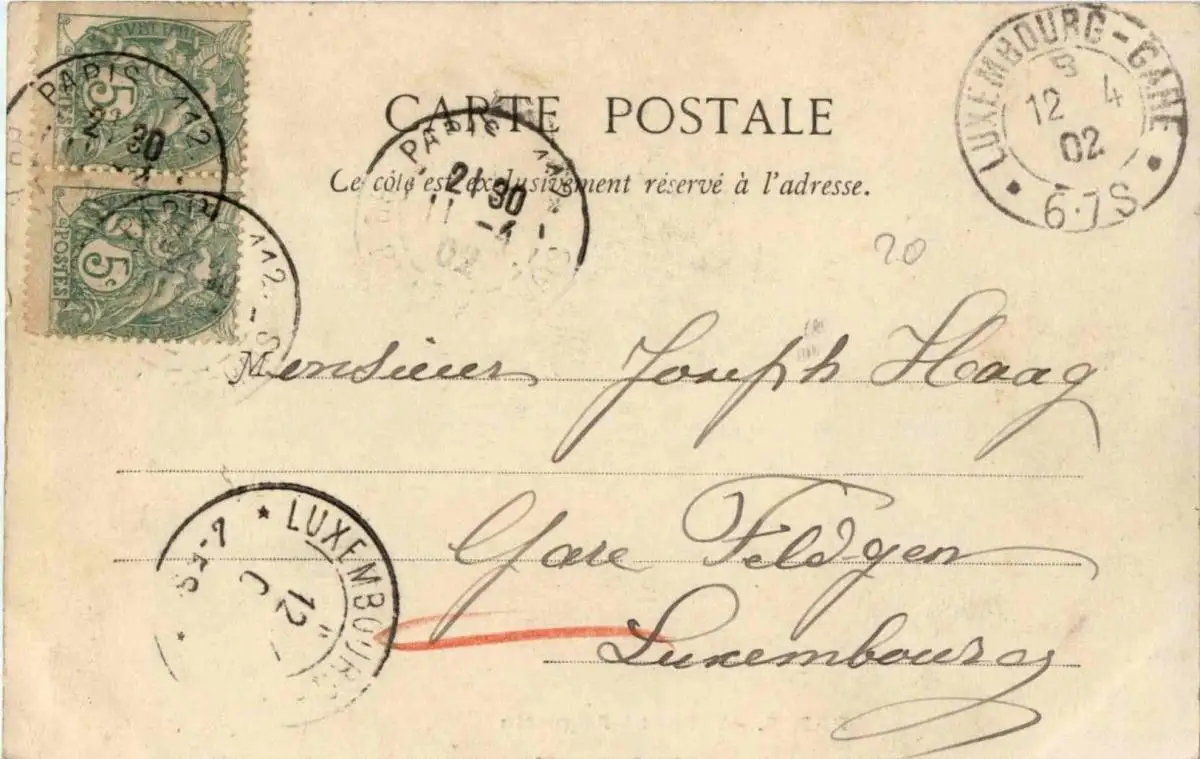 CARTE POSTALE
Ce côté est exclusivement réservé à l'adresse.
PARIS 112.
2 30
5
POSTES
5c
112.
PARIS 112
21 30
11 -4
02
LUXEMBOURG - GARE
12 4
02
6-7S
20
Monsieur Joseph Haag
Gare Feldgen
Luxembourg
LUXEMBOURG
12